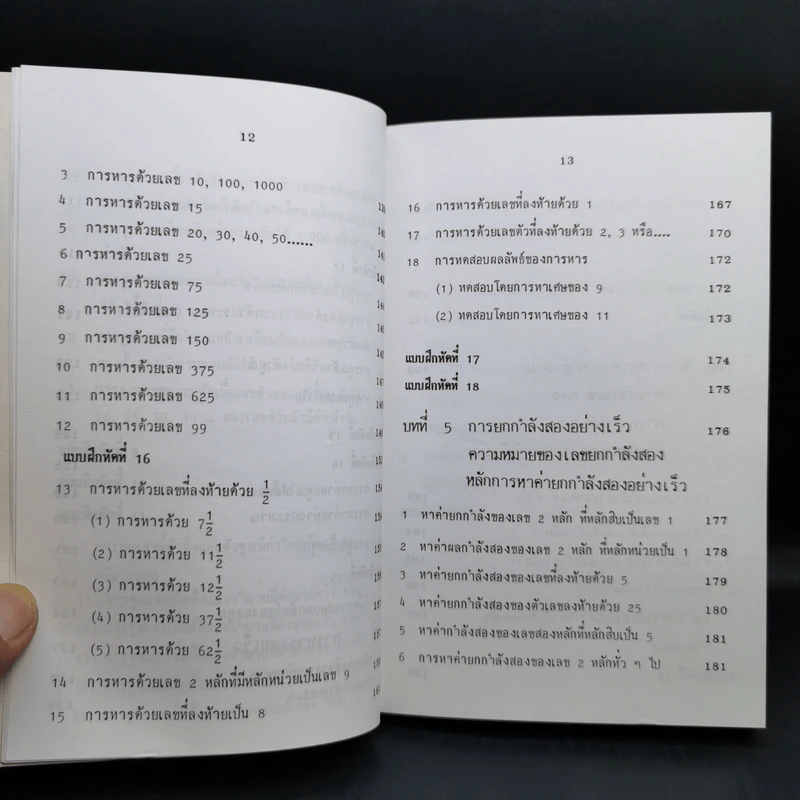 12
3 การหารด้วยเลข 10, 100, 1000
4 การหารด้วยเลข 15
5 การหารด้วยเลข 20, 30, 40, 50......
6 การหารด้วยเลข 25
7 การหารด้วยเลข 75
8 การหารด้วยเลข 125
9 การหารด้วยเลข 150
10 การหารด้วยเลข 375
11 การหารด้วยเลข 625
12 การหารด้วยเลข 99
แบบฝึกหัดที่ 16
13 การหารด้วยเลขที่ลงท้ายด้วย 1/2
(1) การหารด้วย 7 1/2
(2) การหารด้วย 11 1/2
(3) การหารด้วย 12 1/2
(4) การหารด้วย 37 1/2
(5) การหารด้วย 62 1/2
14 การหารด้วยเลข 2 หลักที่มีหลักหน่วยเป็นเลข 9
15 การหารด้วยเลขที่ลงท้ายเป็น 8
13
16 การหารด้วยเลขที่ลงท้ายด้วย 1 167
17 การหารด้วยเลขตัวที่ลงท้ายด้วย 2, 3 หรือ.... 170
18 การทดสอบผลลัพธ์ของการหาร 172
(1) ทดสอบโดยการหาเศษของ 9 172
(2) ทดสอบโดยการหาเศษของ 11 173
แบบฝึกหัดที่ 17 174
แบบฝึกหัดที่ 18 175
บทที่ 5 การยกกำลังสองอย่างเร็ว 176
ความหมายของเลขยกกำลังสอง
หลักการหาค่ายกกำลังสองอย่างเร็ว
1 หาค่ายกกำลังของเลข 2 หลัก ที่หลักสิบเป็นเลข 1 177
2 หาค่าผลกำลังสองของเลข 2 หลัก ที่หลักหน่วยเป็น 1 178
3 หาค่ายกกำลังสองของเลขที่ลงท้ายด้วย 5 179
4 หาค่ายกกำลังสองของตัวเลขลงท้ายด้วย 25 180
5 หาค่ากำลังสองของเลขสองหลักที่หลักสิบเป็น 5 181
6 การหาค่ายกกำลังสองของเลข 2 หลักทั่ว ๆ ไป 181